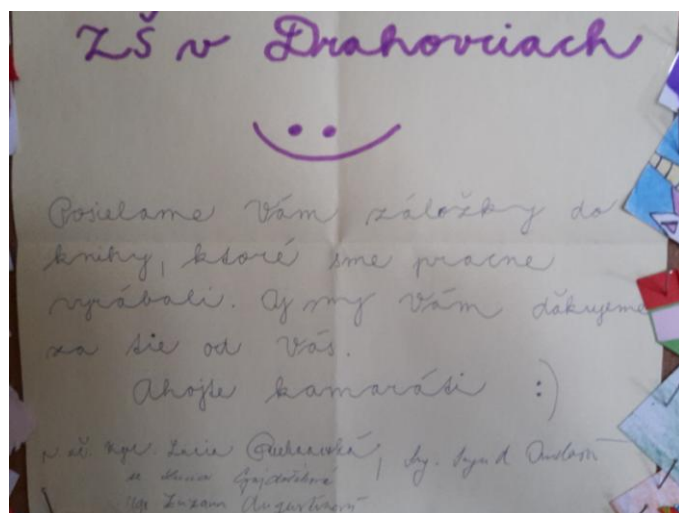 ZŠ v Drahovciach
Posielame Vám záložky do
knihy, ktoré sme pracne
vyrábali. Aj my Vám ďakujeme
za tie od Vás.
Ahojte kamaráti :)
Mgr. Lucia Ing.
Zuzana Augustínová